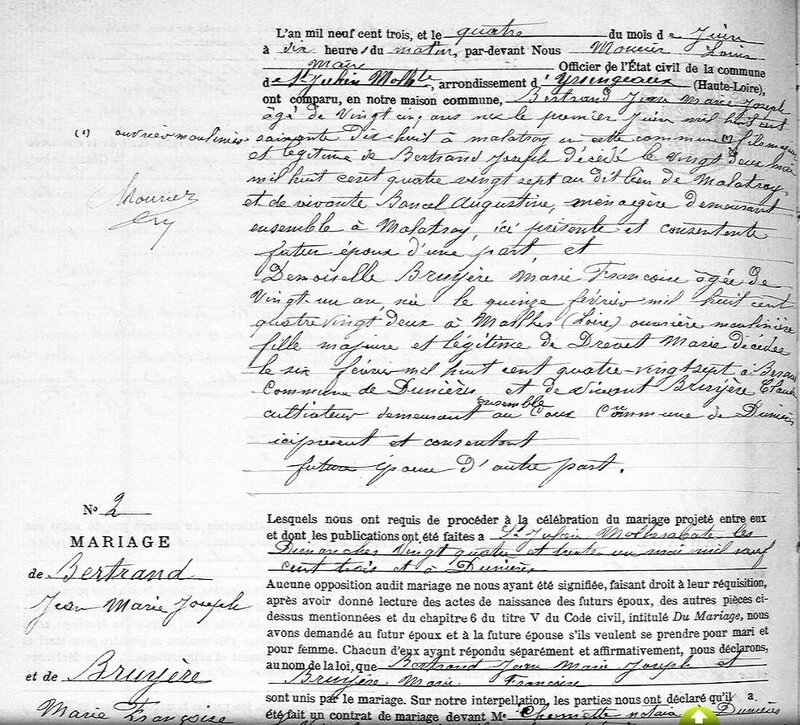 L'an mil neuf cent trois, et le quatre du mois de Juin
à dix heures du matin, par-devant Nous Mourier Louis
Maire Officier de l'État civil de la commune
de St Julien Molh te, arrondissement d'Yssingeaux (Haute-Loire),
ont comparu, en notre maison commune, Bertrand Jean Marie Joseph
âgé de Vingt cinq ans né le premier Juin mil huit cent
soixante dix huit à malatray en cette commune (1) fils majeur
et légitime de Bertrand Joseph décédé le vingt deux mai
mil huit cent quatre vingt sept au dit lieu de Malatray
et de vivante Bancel Augustine, menagère demeurant
ensemble à Malatray, ici présente et consentente
futur époux d'une part et
Demoiselle Bruyère Marie Francoise âgée de
Vingt un an née le quinze février mil huit cent
quatre vingt deux à Marlhes (Loire) ouvrière moulinière
fille majeure et légitime de Drevet Marie décédée
le six février mil huit cent quatre-vingt sept à
Commune de Dunières et de vivant Bruyère Claude
cultivateur demeurant ensemble au Coux Commune de Dunières
ici présent et consentant
future épouse d'autre part.
(1) ouvrier moulinier
Mourier
Lesquels nous ont requis de procéder à la célébration du mariage projeté entre eux
et dont les publications ont été faites à St Julien Molhesabate les
Dimanches Vingt quatre et trente un mai mil neuf
cent trois et à Dunières
Aucune opposition audit mariage ne nous ayant été signifiée, faisant droit à leur réquisition,
après avoir donné lecture des actes de naissance des futurs époux, des autres pièces ci-
dessus mentionnées et du chapitre 6 du titre V du Code civil, intitulé Du Mariage, nous
avons demandé au futur époux et à la future épouse s'ils veulent se prendre pour mari et
pour femme. Chacun d'eux ayant répondu séparément et affirmativement, nous déclarons,
au nom de la loi, que Bertrand Jean Marie Joseph et
Bruyère Marie Francoise
sont unis par le mariage. Sur notre interpellation, les parties nous ont déclaré qu'il a
été fait un contrat de mariage devant Me notaire Dunières
No 2
MARIAGE
de Bertrand
Jean Marie Joseph
et de Bruyère
Marie Françoise